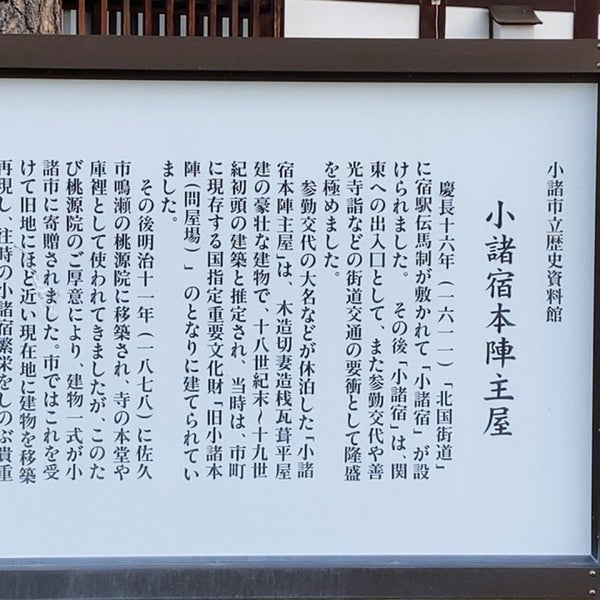 小諸市立歴史資料館
小諸宿本陣主屋
慶長十六年（一六一一）「北国街道」
に宿駅伝馬制が敷かれて「小諸宿」が設
けられました。その後「小諸宿」は、関
東への出入口として、また参勤交代や善
光寺詣などの街道交通の要衝として隆盛
を極めました。
参勤交代の大名などが休泊した「小諸
宿本陣主屋」は、木造切妻造桟瓦葺平屋
建の豪壮な建物で、十八世紀末～十九世
紀初頭の建築と推定され、当時は、市町
に現存する国指定重要文化財「旧小諸本
陣（問屋場）」のとなりに建てられてい
ました。
その後明治十一年（一八七八）に佐久
市鳴瀬の桃源院に移築され、寺の本堂や
庫裡として使われてきましたが、このた
び桃源院のご厚意により、建物一式が小
諸市に寄贈されました。市ではこれを受
けて旧地にほど近い現在地に建物を移築
再現し、往時の小諸宿繁栄をしのぶ貴重